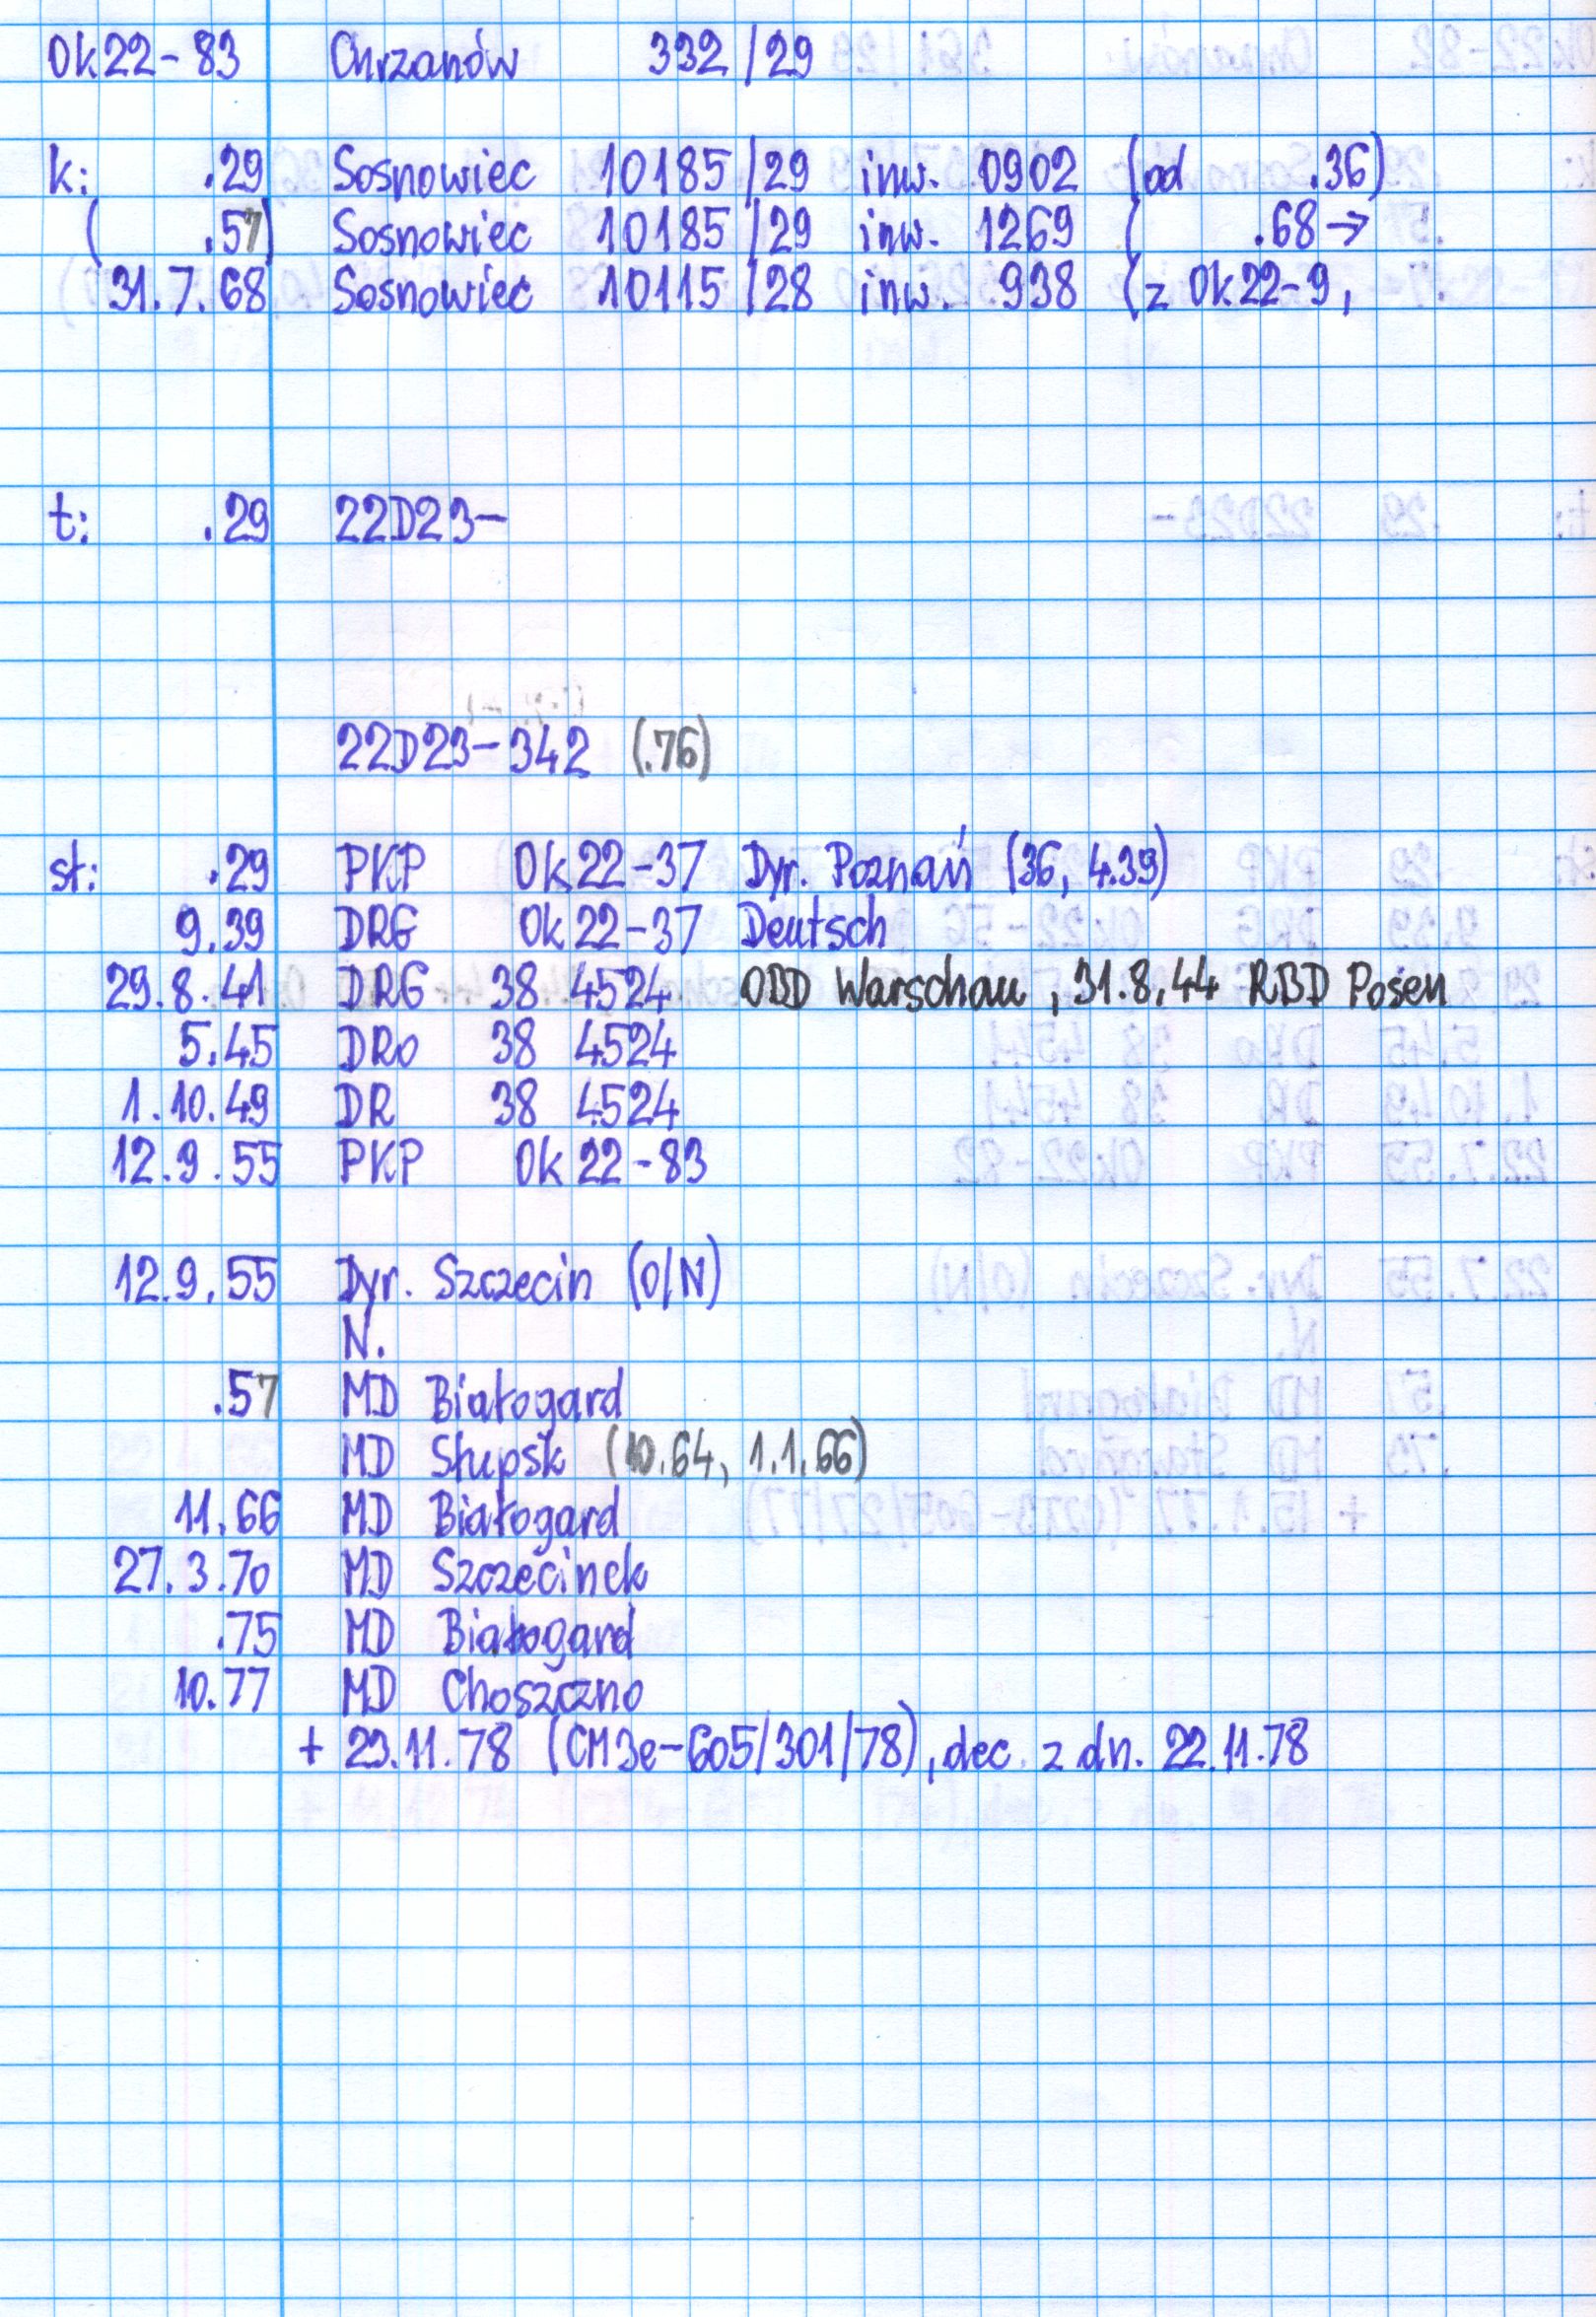 Ok22-83 Chrzanów 332/29
k: .29 Sosnowiec 10185/29 inw. 0902 (od .36)
( .57) Sosnowiec 10185/29 inw. 1269 ( .68→
31.7.68 Sosnowiec 10115/28 inw. 938 (z Ok22-9,
t: .29 22D23-
22D23-342 (.76)
st: .29 PKP Ok22-37 Dyr. Poznań (36, 4.39)
9.39 DRG Ok22-37 Deutsch
29.8.41 DRG 38 4524 OBD Warschau, 31.8.44 RBD Posen
5.45 DRo 38 4524
1.10.49 DR 38 4524
12.9.55 PKP Ok22-83
12.9.55 Dyr. Szczecin (O/N)
N.
.57 MD Białogard
MD Słupsk (10.64, 1.1.66)
11.66 MD Białogard
27.3.70 MD Szczecinek
.75 MD Białogard
10.77 MD Choszczno
+ 23.11.78 (CM3e-605/301/78), dec. z dn. 22.11.78